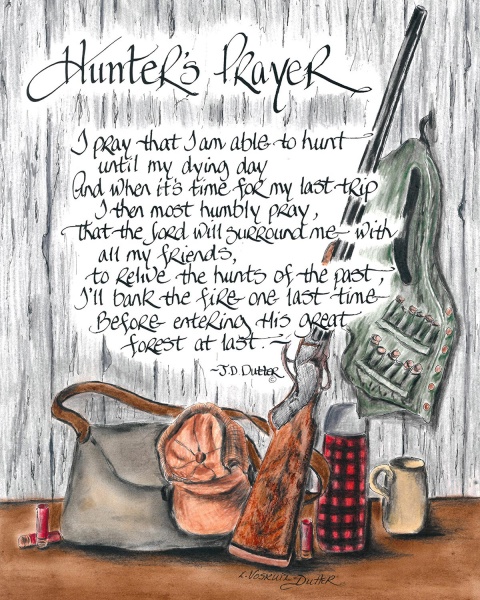 Hunter's Prayer
I pray that I am able to hunt
until my dying day
And when it's time for my last trip
I then most humbly pray,
That the Lord will surround me with
all my friends,
to relive the hunts of the past,
I'll bank the fire one last time
Before entering His great
forest at last.~
~J.D. Dutler
©
L. Voskuil-Dutler